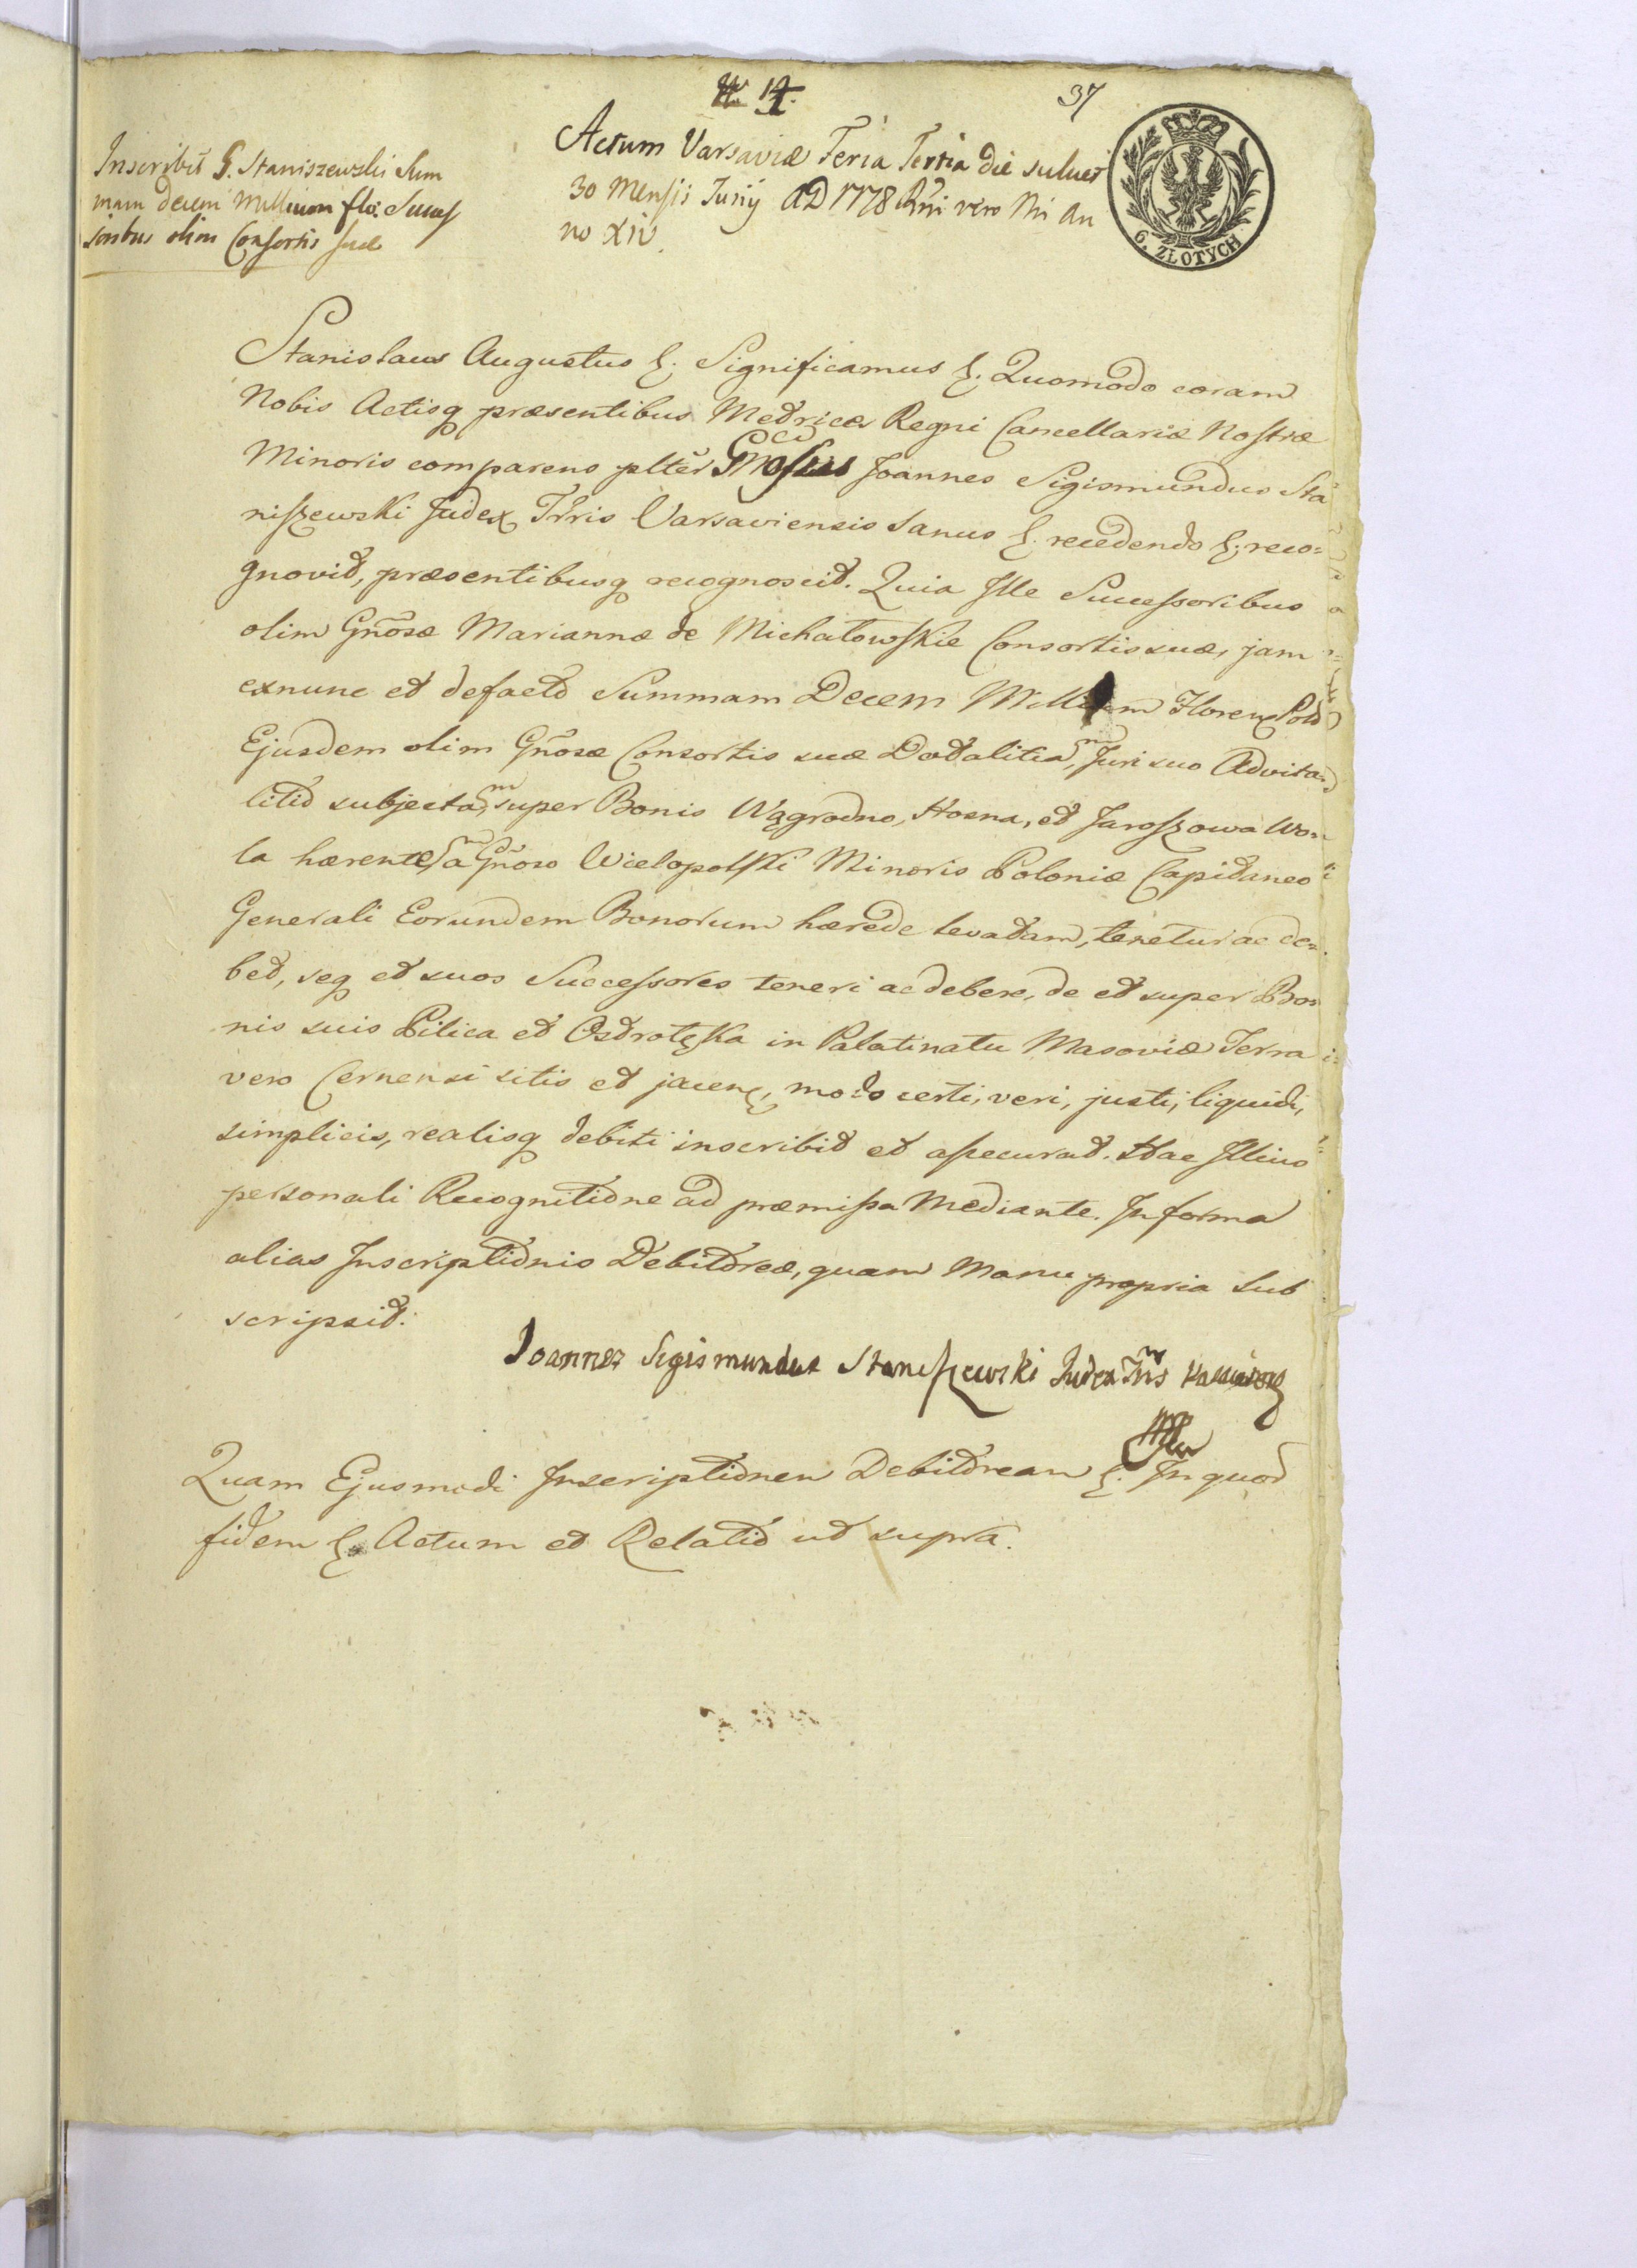 N. 14.
37
6. ZŁOTYCH
Inscribit G. Staniszewski Sum
mam decem Millium flo: Succes
soribus olim Consortis suæ
Actum Varsaviæ Feria Tertia die scilicet
30 Mensis Junij AD 1778 Rñi vero Nri An
no XIV
Stanislaus Augustus &. Significamus &. Quomodo coram
Nobis Actisq præsentibus Metrices Regni Cancellariæ Nostræ
Minoris comparens plter Joannes Sigismundus Sta
niszewski Judex Trris Varsaviensis sanus &. recedendo &. reco=
gnovit, præsentibusq recognoscit. Quia Ille Successoribus
olim Gñosæ Mariannæ de Michałowskie Consortis suæ, jam
exnunc et defacto Summam Decem Millium Floren Pold
Ejusdem olim Gñosæ Consortis suæ Dotalitiam, Juri suo Advita=
litio subjectam, super Bonis Wągrodno, Hosna, et Jaroszowa Wo=
la hærentem a Gñoso Wielopolski Minoris Poloniæ Capitaneo
Generali Eorundem Bonorum hærede levatam, tenetur ac de=
bet, seq et suos Successores teneri ac debere, de et super Bo=
nis suis Pilica et Ostrołęka in Palatinatu Masoviæ Terra
vero Cernensi sitis et jacen, modo certi, veri, justi, liquidi,
simplicis, realisq debiti inscribit et assecurat. Hac Illius
personali Recognitione ad præmissa Mediante. In forma
alias Inscriptionis Debitoreæ, quam Manu propria Sub
scripsit.
Joannes Sigismundus Staniszewski Judex Trrs
Quam Ejusmodi Inscriptionem Debitoream &. In quor
fidem &. Actum et Relatio ut supra.